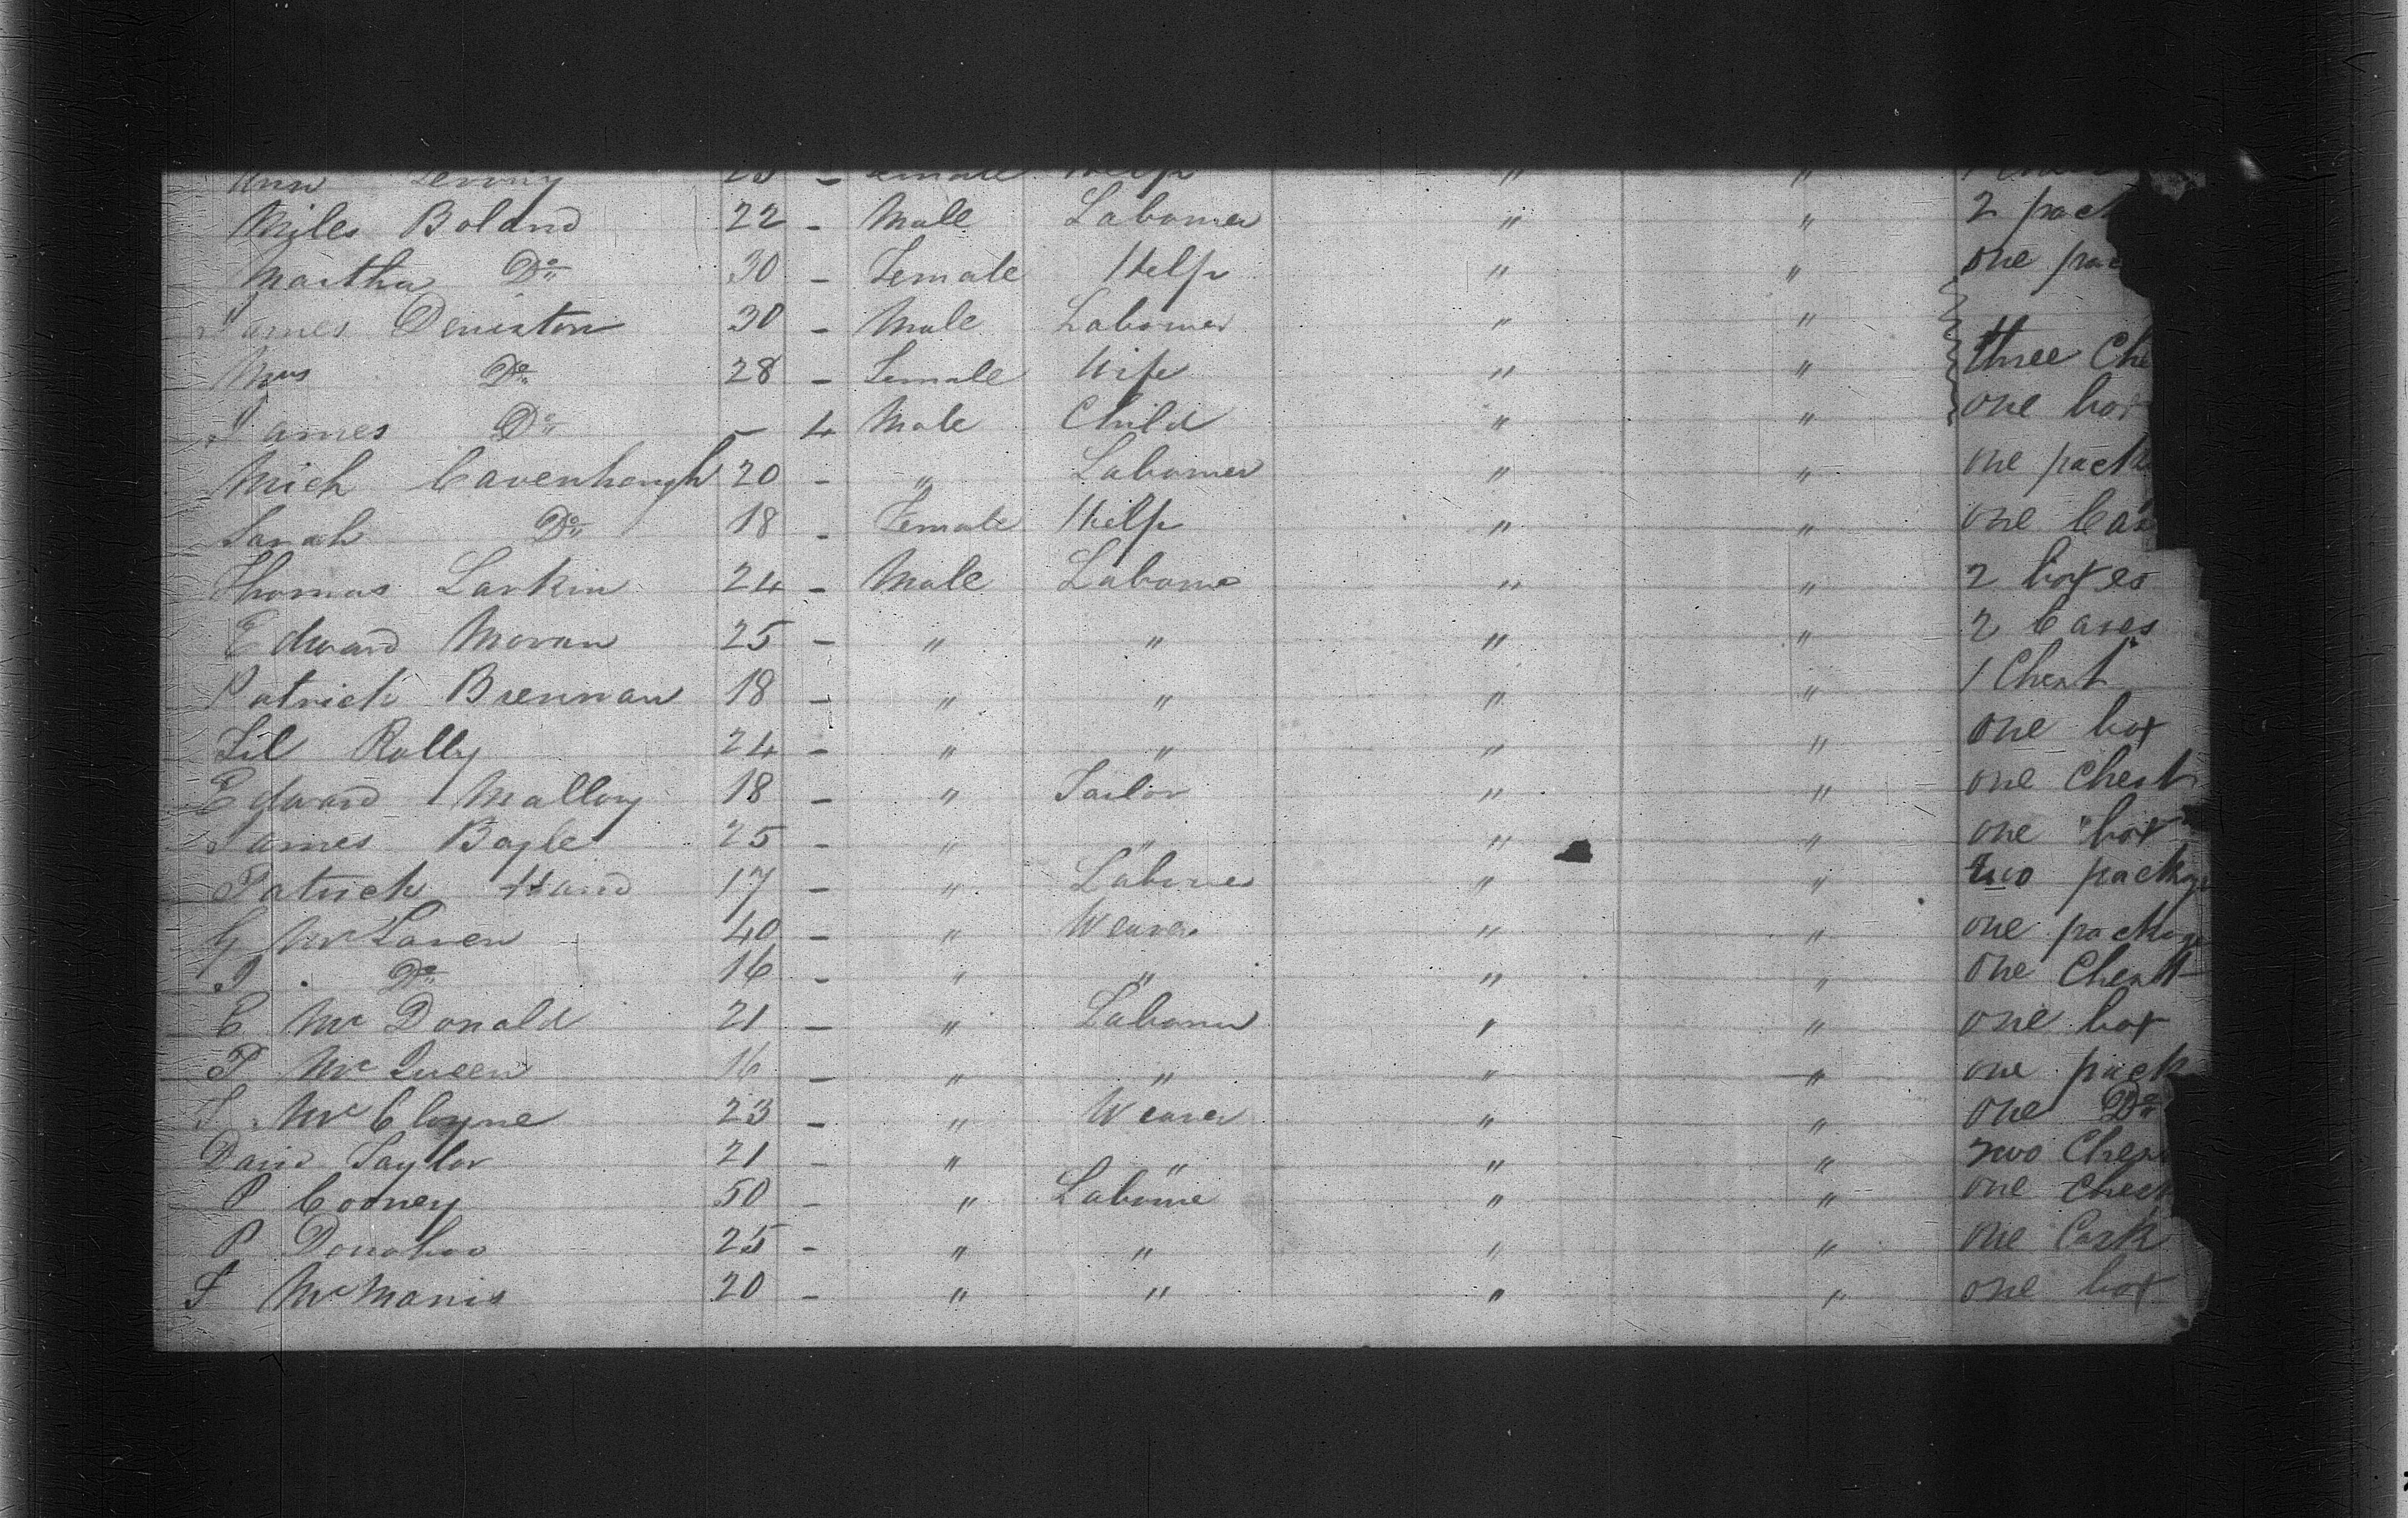 Ann 23 - Female Help " "
Myles Boland 22 - Male Labourer " " 2 pack
Martha Do 30 - Female Help " " one pac
James Deniston 30 - Male Labourer " "
Mrs Do 28 - Female Wife " " three Che
James Do - 4 Male Child " " one box
Mich Cavenhough 20 - " Labourer " " one pack
Sarah Do 18 - Female Help " " one Cas
Thomas Larkin 24 - Male Laboure " " 2 boxes
Edward Moran 25 - " " " " 2 Cases
Patrick Brennan 18 - " " " " 1 Chest
Lil Rally 24 - " " " " one box
Edward Malloy 18 - " Tailor " " one Chest
James Bogle 25 - " " " " one box
Patrick Hand 17 - " Labourer " " two package
G McLaren 40 - " Weaver " " one package
J Do 16 - " " " " one Chest
C Mc Donald 21 - " Labourer " " one box
P McQueen 16 - " " " " one pack
S McCloyne 23 - " Weaver " " one Do
David Taylor 21 - " " " " two Ches
P Cooney 50 - " Laboure " " one Chest
P Donohoo 25 - " " " " one Cask
S McManis 20 - " " " " one box